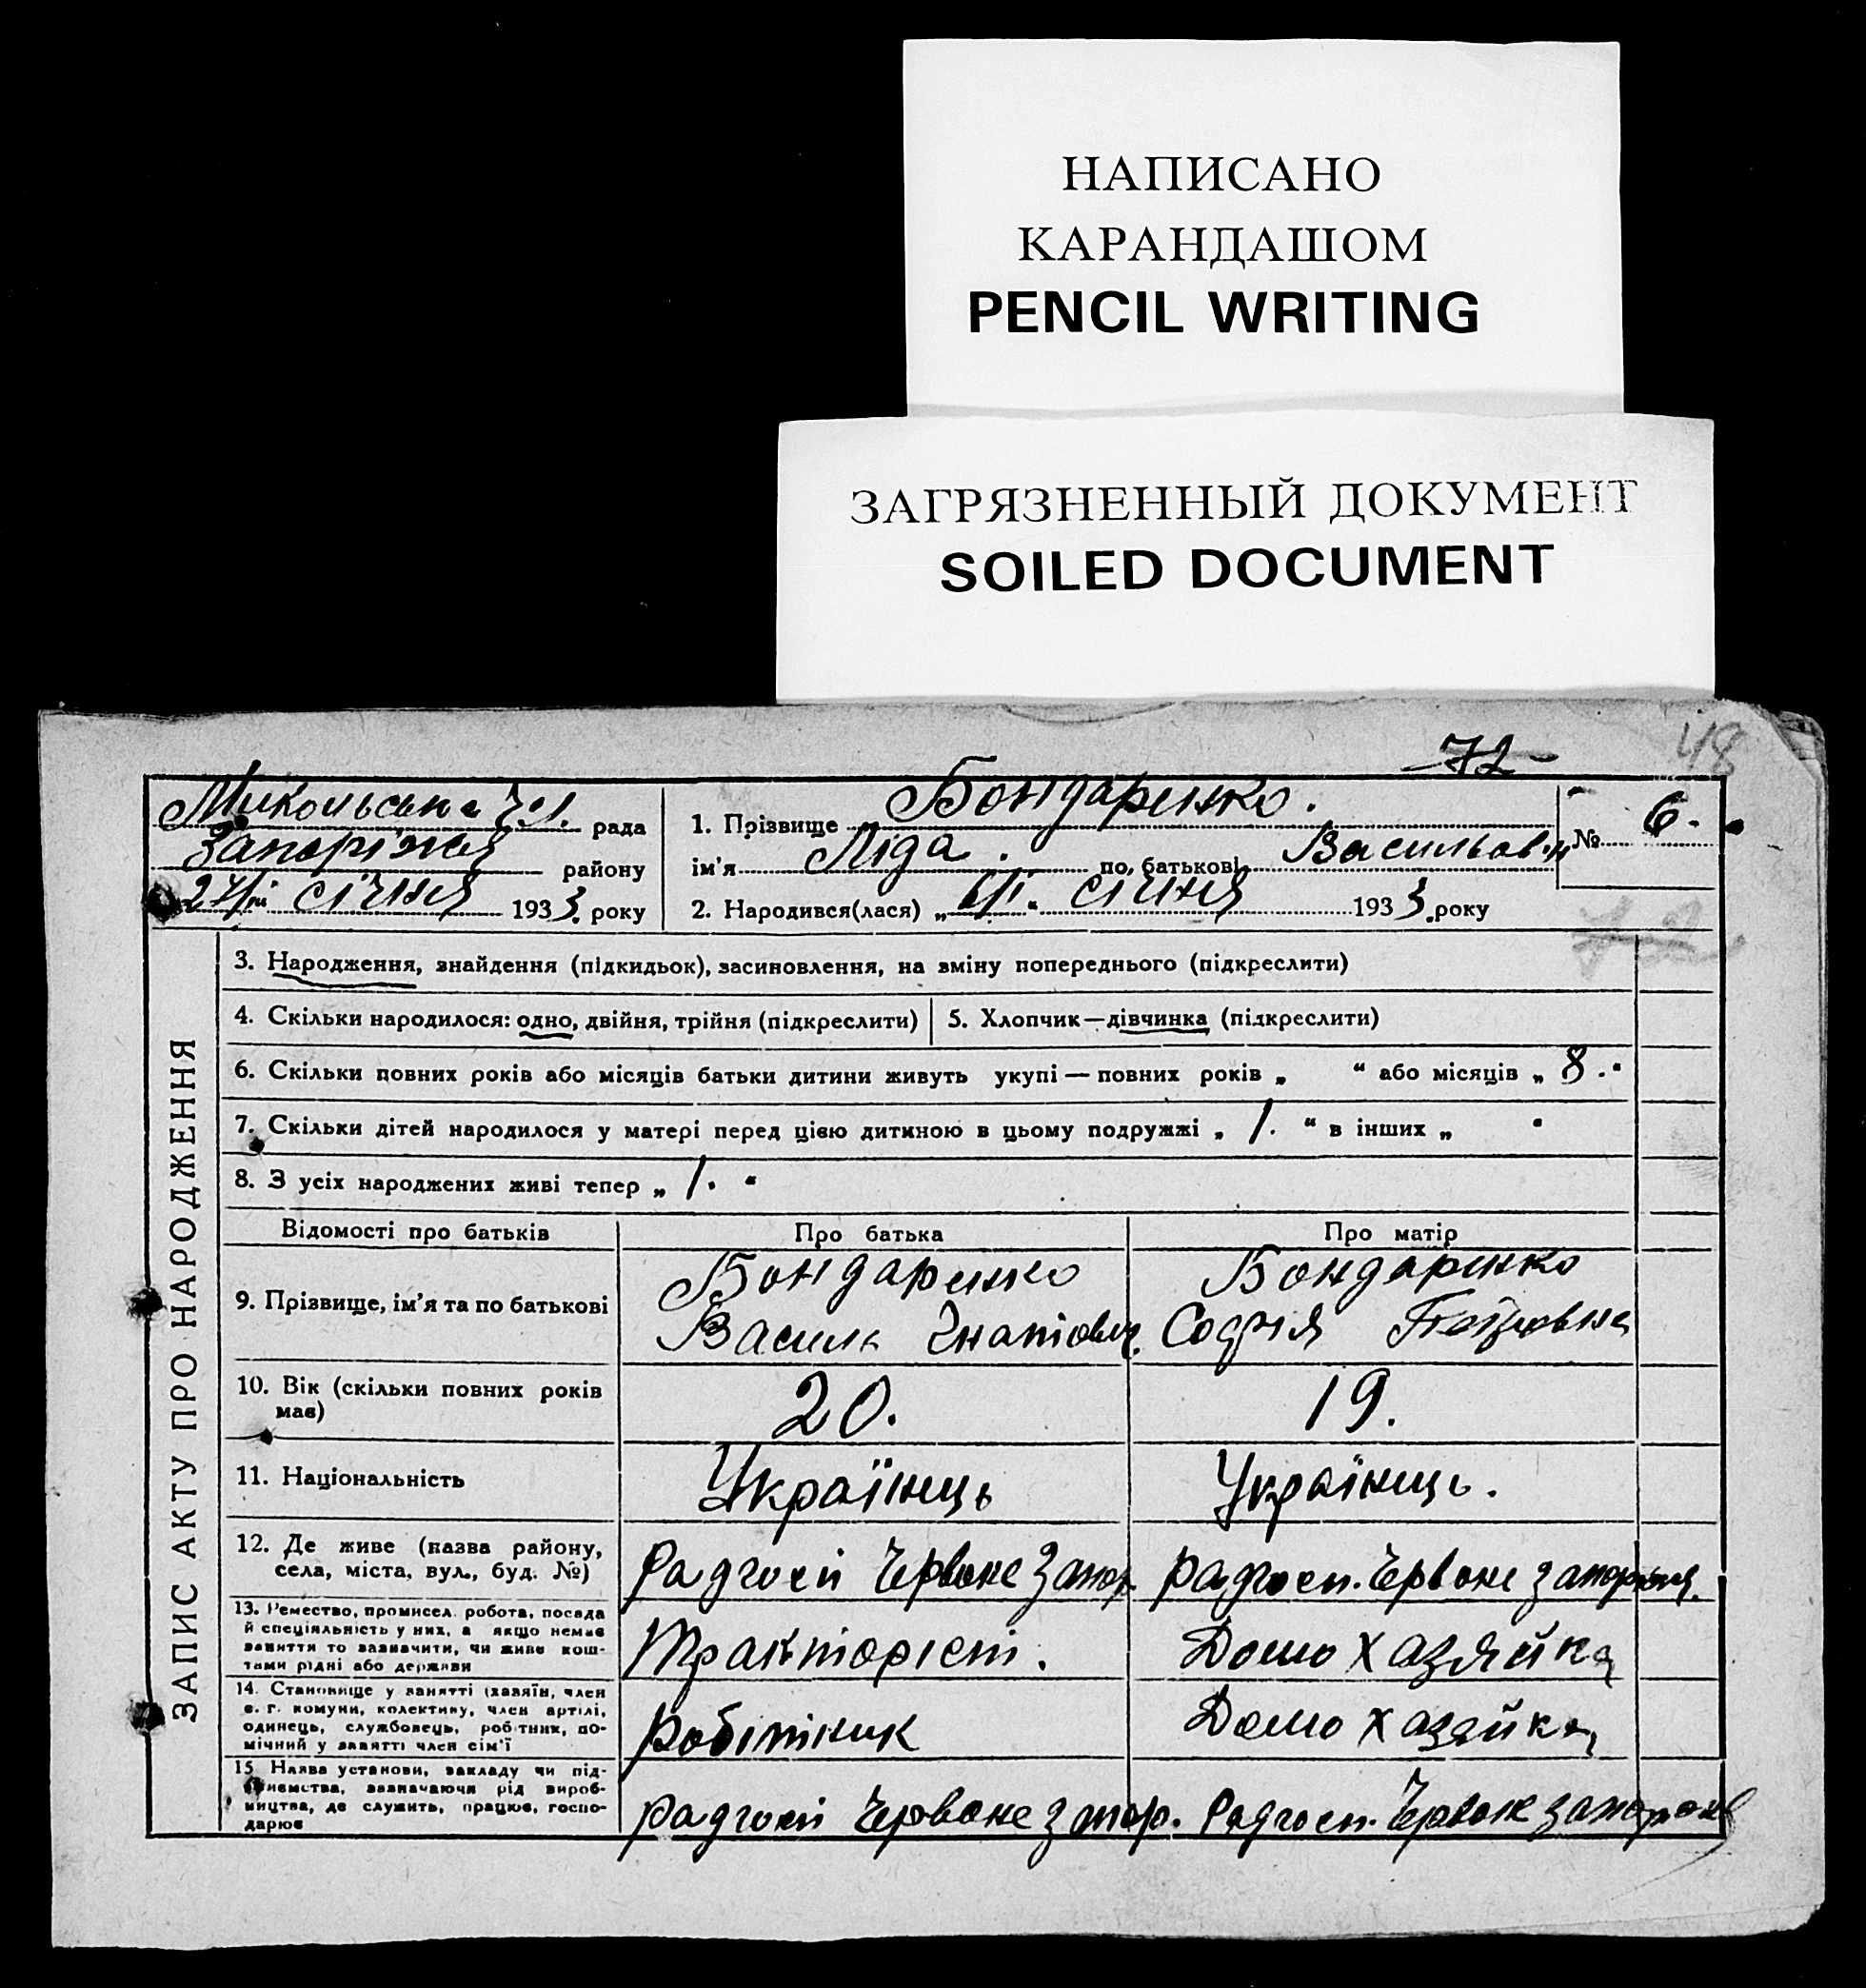 НАПИСАНО
КАРАНДАШОМ
PENCIL WRITING
ЗАГРЯЗНЕННЫЙ ДОКУМЕНТ
SOILED DOCUMENT
72
48
рада
Запоріжжя району
193 3. року
1. Прізвище Бондаренко.
ім'я Ліда. по батькові Васильовн
2. Народився(лася) „ “ січня 193 3. року
№ 6.
72
січня
ЗАПИС АКТУ ПРО НАРОДЖЕННЯ
3. Народження, знайдення (підкидьок), засиновлення, на зміну попереднього (підкреслити)
4. Скільки народилося: одно, двійня, трійня (підкреслити)
5. Хлопчик—дівчинка (підкреслити)
6. Скільки повних років або місяців батьки дитини живуть укупі — повних років „ “ або місяців „ 8. “
7. Скільки дітей народилося у матері перед цією дитиною в цьому подружжі „ 1. “ в інших „ “
8. З усіх народжених живі тепер „ 1. “
Відомості про батьків Про батька Про матір
9. Прізвище, ім'я та по батькові
Бондаренко
Василь Гнатович.
Бондаренко
Софія Петровна
10. Вік (скільки повних років
має)
20.
19.
11. Національність
Українець
Українець.
12. Де живе (назва району,
села, міста, вул., буд. №)
Радгосп Червоне Запор.
Радгосп. Червоне
13. Ремество, промисел, робота, посада
й спеціяльність у них, а якщо немає
заняття то зазначити, чи живе кош-
тами рідні або держави
Тракторіст.
Домохазяйка
14. Становище у занятті (хазяїн, член
с. г. комуни, колективу, член артілі,
одинець, службовець, робітник, по-
мічний у занятті член сім'ї
Робітник
Домохазяйка
15. Назва установи, закладу чи під-
приємства, зазначаючи рід вироб-
ництва, де служить, працює, госпо-
дарює
Радгосп Червоне Запор.
Радгосп. Червоне